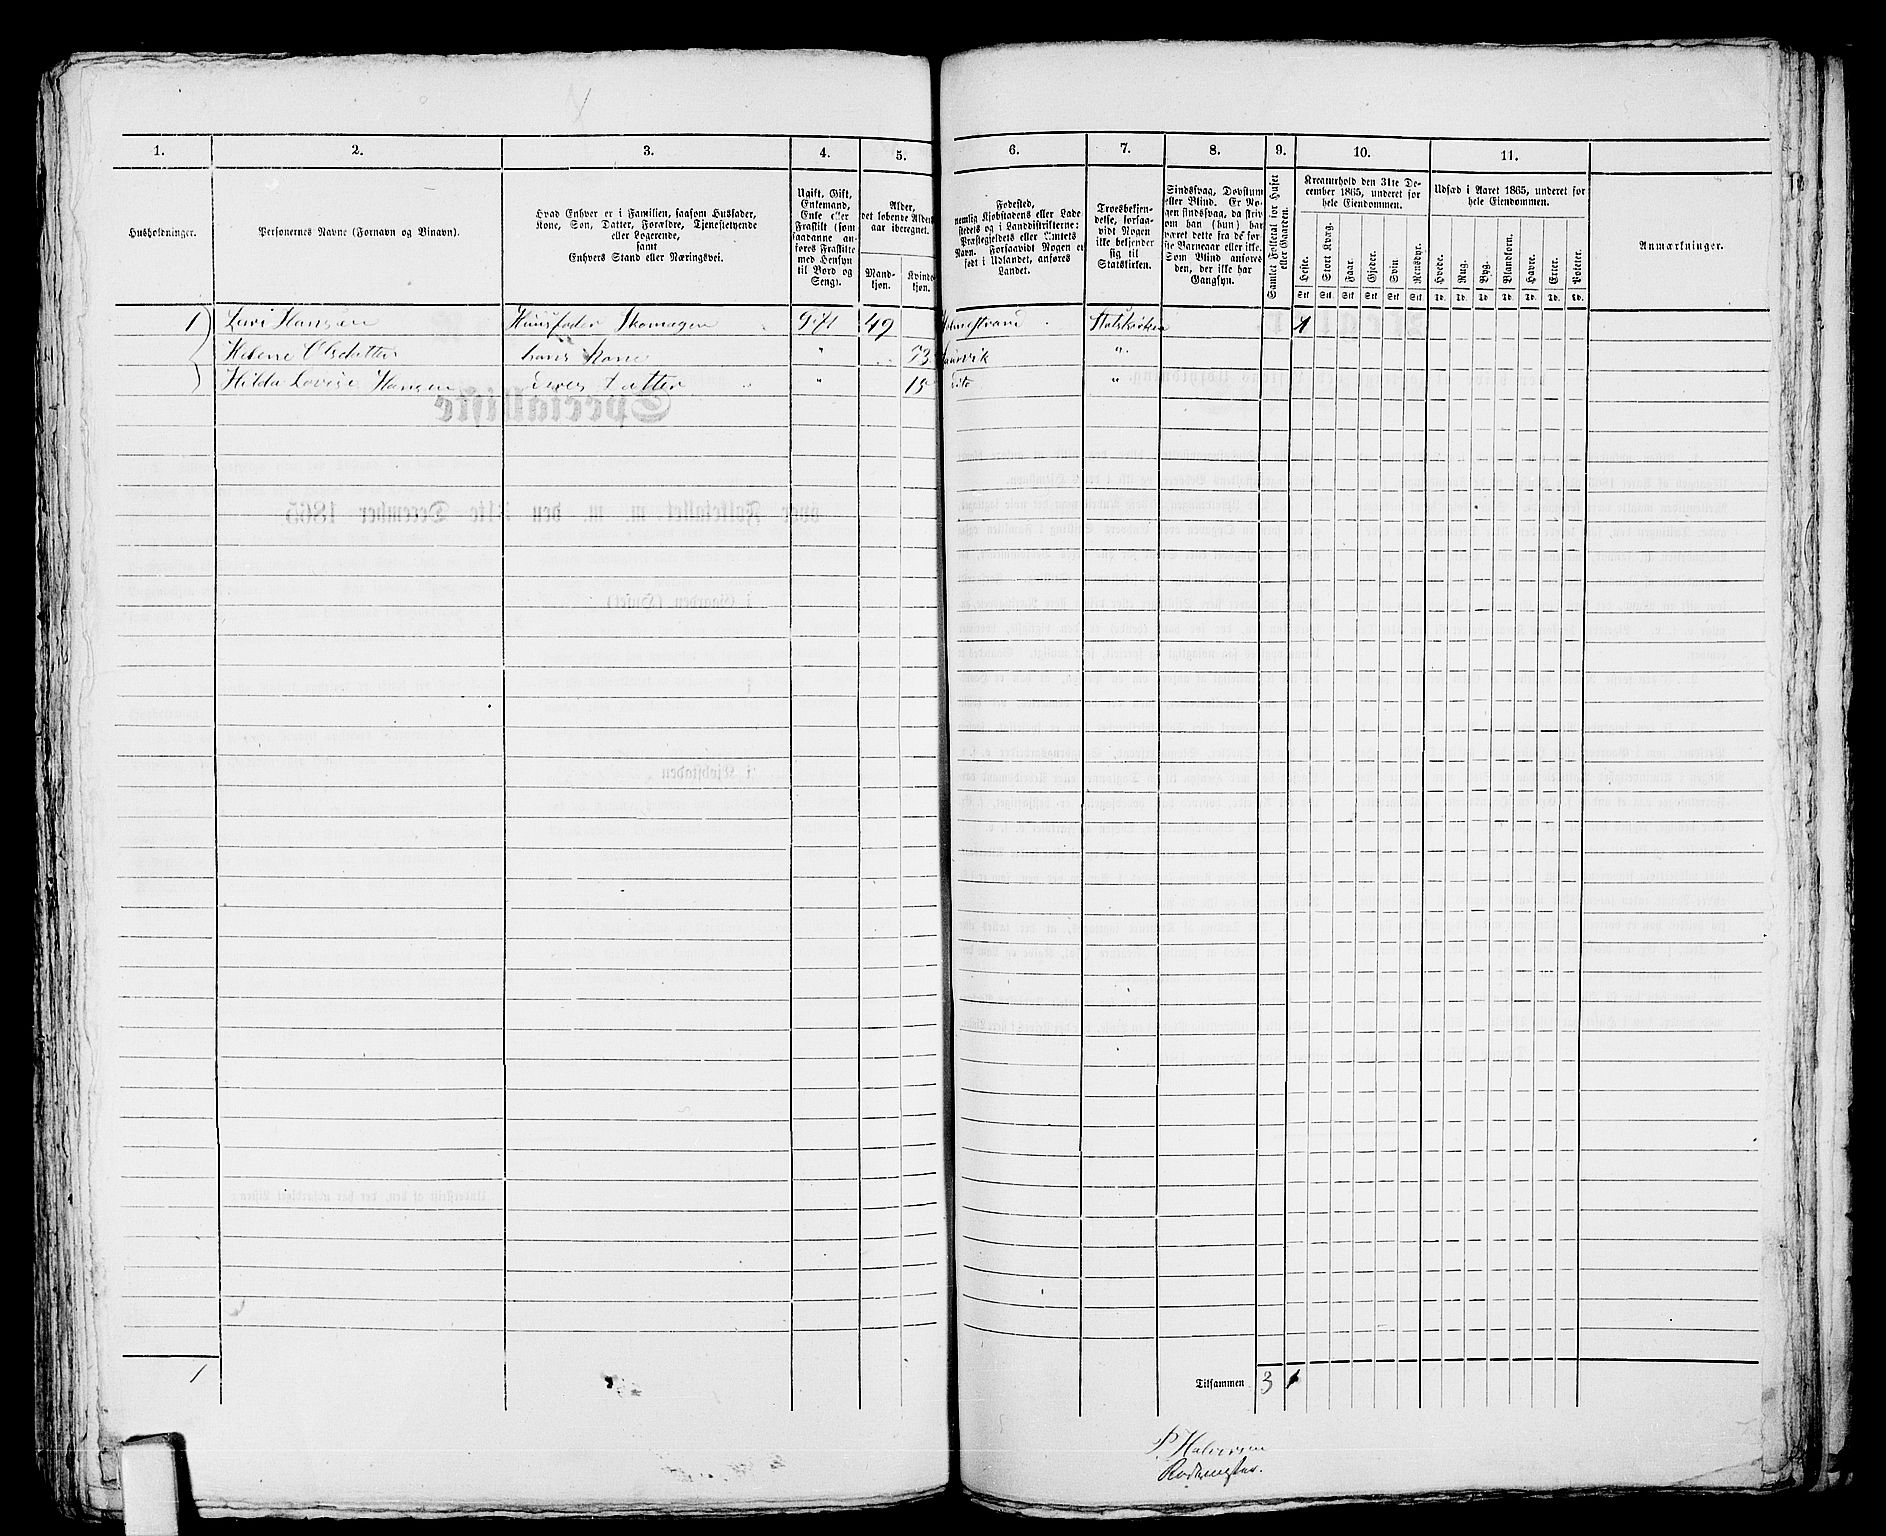 1. 2. 3. 4. 5. 6. 7. 8. 9. 10. 11.
Husholdninger.
Personernes Navne (Fornavn og Binavn).
Hvad Enhver er i Familien, saasom Husfader,
Kone, Søn, Datter, Forældre, Tjenestetyende
eller Logerende,
samt
Enhvers Stand eller Næringsvei.
Ugift, Gift,
Enkemand,
Enke eller
Fraskilt (som
saadanne an-
føres Fraskilte
med Hensyn
til Bord og
Seng).
Alder,
det løbende Alders-
aar iberegnet.
Mand-
kjøn.
Kvinde-
kjøn.
Fødested,
nemlig Kjøbstadens eller Lade-
stedets og i Landdistrikterne:
Præstegjeldets eller Amtets
Navn. Forsaavidt Nogen er
født i Udlandet, anføres
Landet.
Troesbekjen-
delse, forsaa-
vidt Nogen
ikke bekjender
sig til
Statskirken.
Sindssvag, Døvstum
eller Blind. Er No-
gen sindssvag, da skriv
om han (hun) har
været dette fra de før-
ste Barneaar eller ikke.
Som Blind anføres
den, der ikke har
Gangsyn.
Samlet Folketal for Huset
eller Gaarden.
Kreaturhold den 31te De-
cember 1865, underet for
hele Eiendommen.
Heste. Stort Kvæg. Faar. Gjeder. Svin. Rensdyr.
Stk Stk Stk Stk Stk Stk
Udsæd i Aaret 1865, underet for
hele Eiendommen.
Hvede. Rug. Byg. Blandkorn. Havre. Erter. Poteter.
Td. Td. Td. Td. Td. Td. Td.
Anmærkninger.
1 Levi Hansen Huusfader Skomager Gift 49 Holmestrand Statskirken 1
Helene Olsdatter hans Kone " 53 Laurvik "
Hilda Lovise Hansen deres Datter " 15 Dito "
1
Tilsammen 3 1
P Halvorsen
Rodemester.